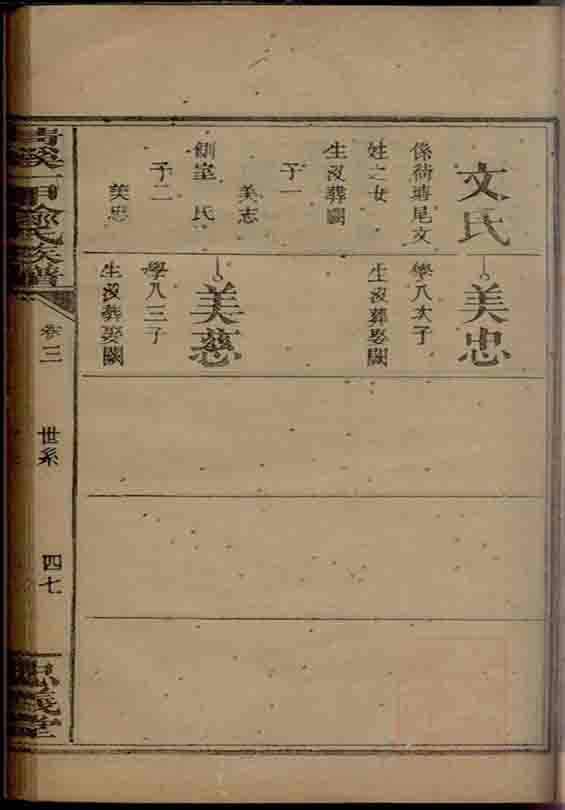 文氏
係荷塘尾文
姓之女
生沒葬闕
子一
美志
副室 氏
子二
美忠
美忠
學八次子
生沒葬娶闕
美慈
學八三子
生沒葬娶闕
氏族譜
卷三
世系
四七
忠義堂